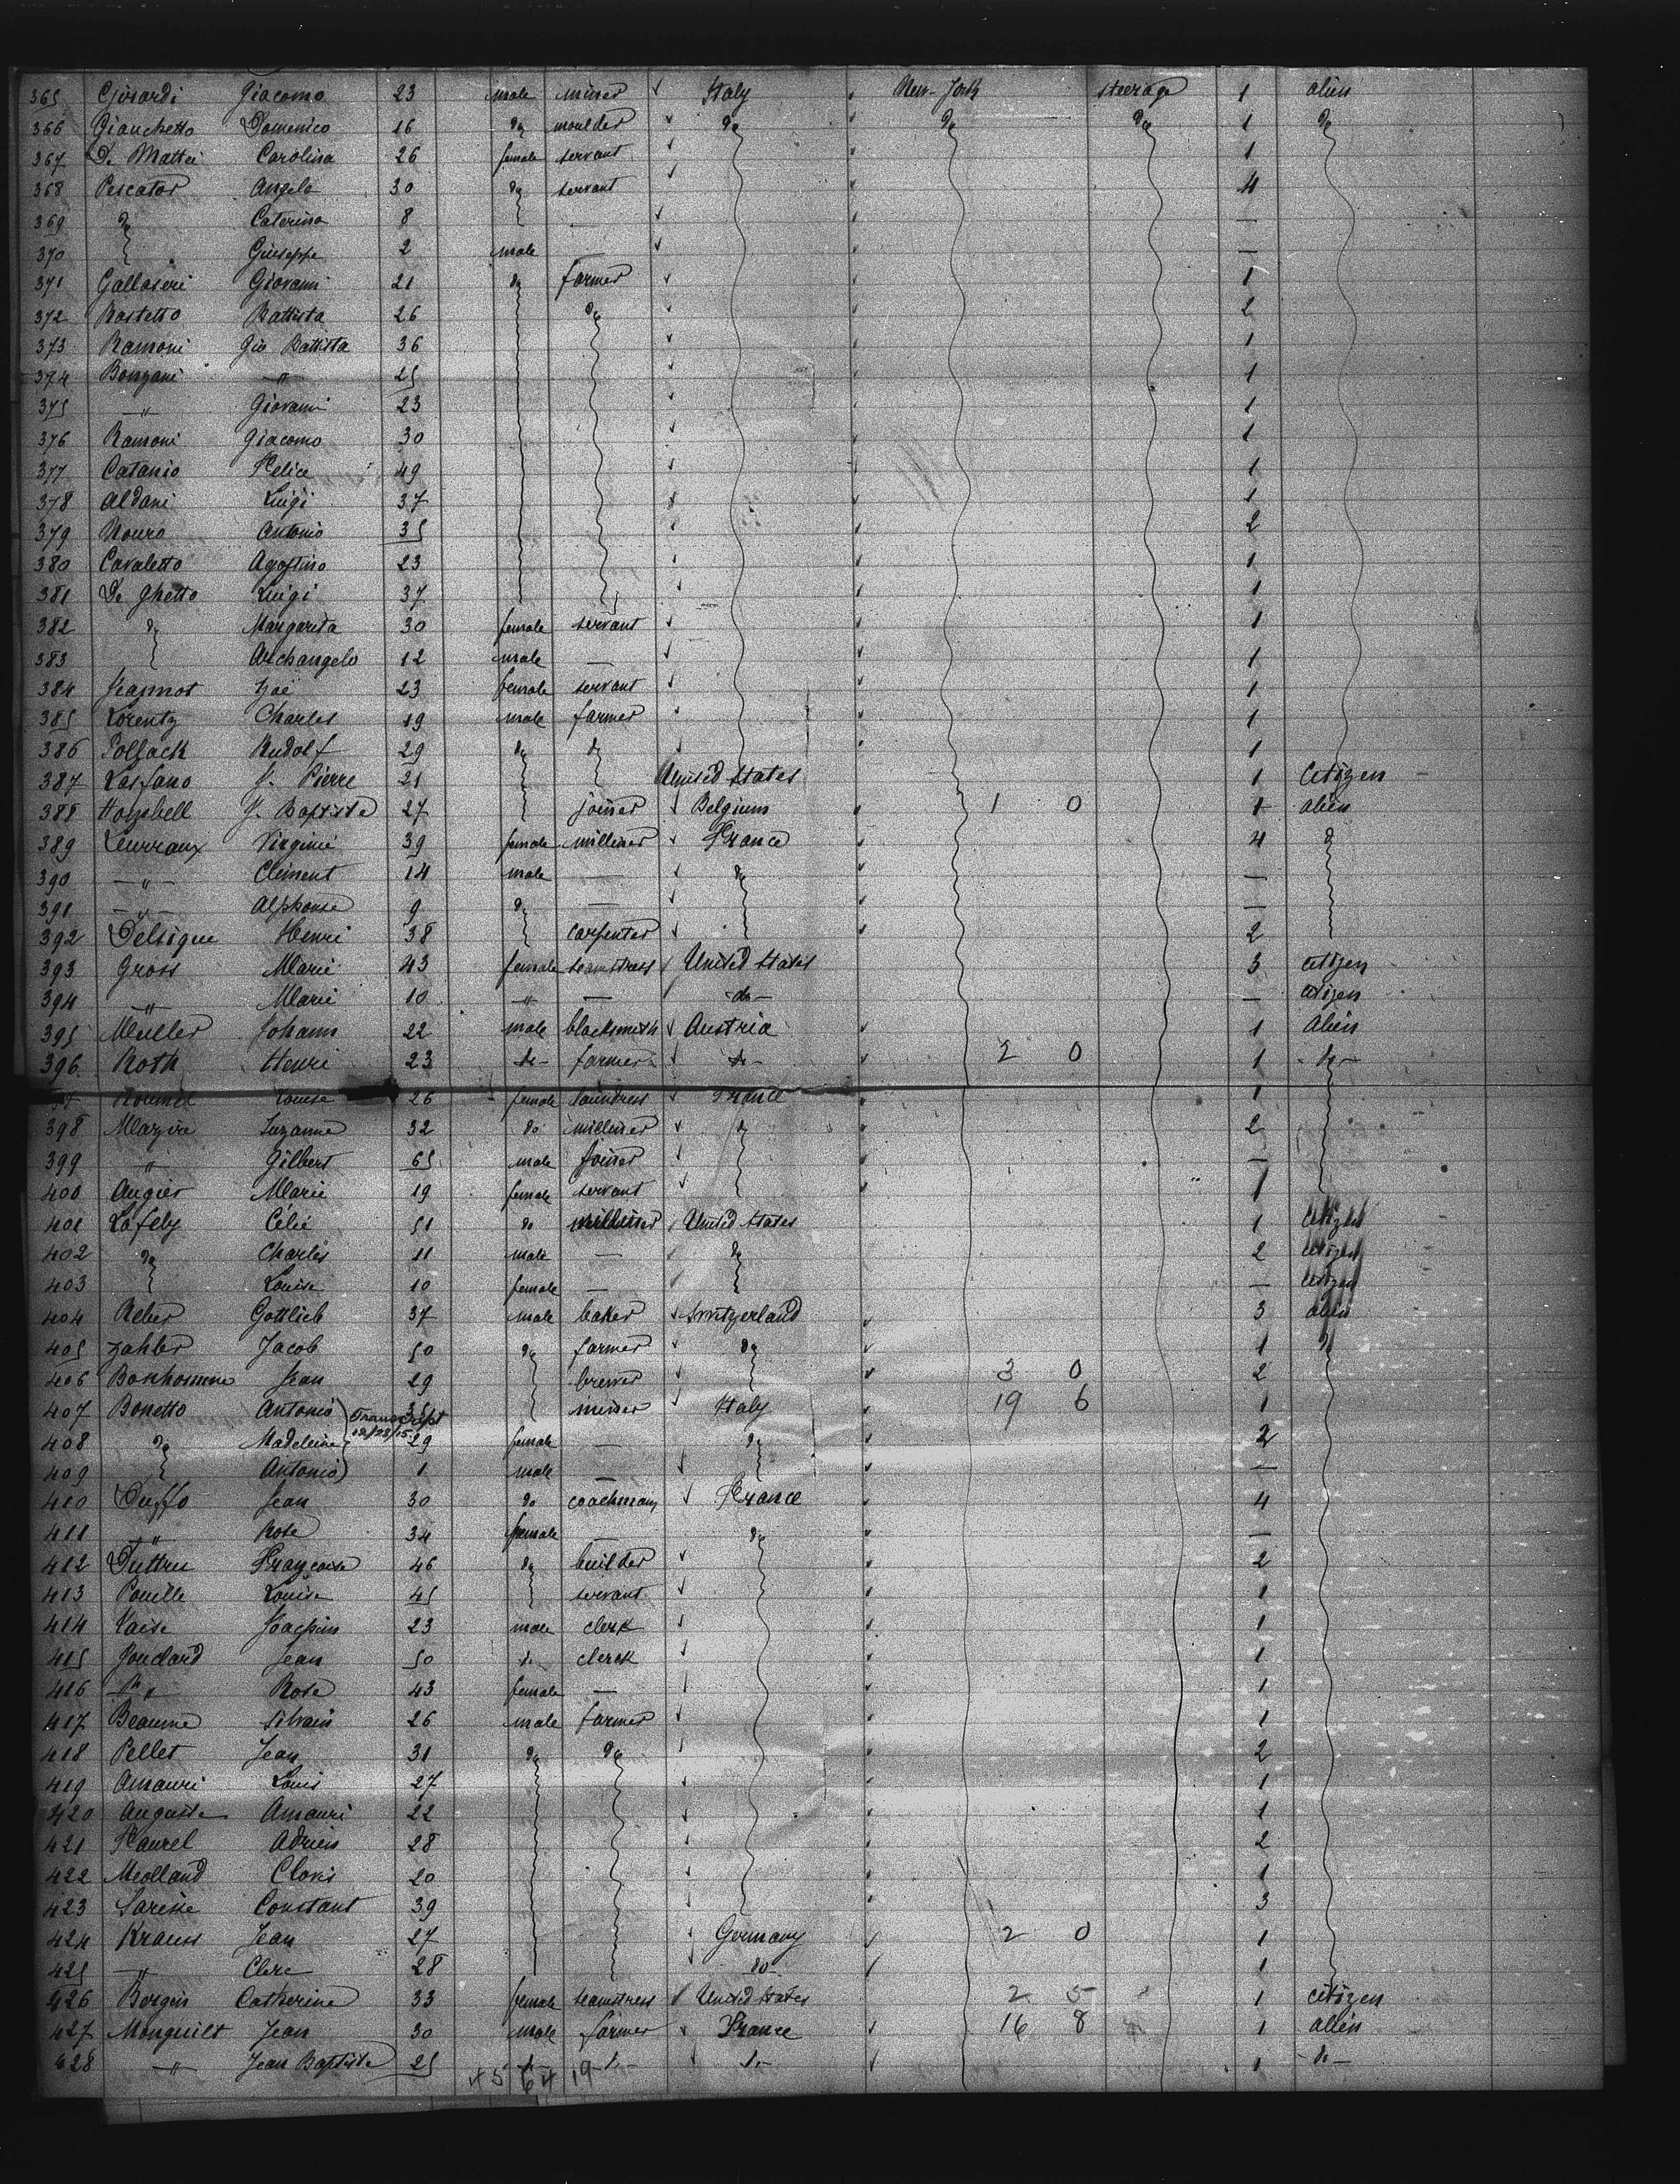 365 Girardi Giacomo 23 male miner Italy New-York steerage 1 alien
366 Gianchetto Domenico 16 do moulder do do do 1 do
367 De Mattei Carolina 26 female servant 1
368 Pescator Angela 30 do servant 4
369 do Caterina 8 —
370 Giuseppe 2 male — —
371 Gallaseri Giovanni 21 do farmer 1
372 Rastetto Battista 26 do 2
373 Ramoni Gio Battista 36 1
374 Bongani —"— 25 1
375 —"— Giovanni 23 1
376 Ramoni Giacomo 30 1
377 Catanio Felice 49 1
378 Aldani Luigi 37 1
379 Nouro Antonio 35 2
380 Cavaletto Agostino 23 1
381 De Ghetto Luigi 37 1
382 do Margarita 30 female servant 1
383 Archangelo 12 male — 1
384 Jeannot Zoé 23 female servant 1
385 Lorentz Charles 19 male farmer 1
386 Polzack Rudolf 29 do do 1
387 Lasfano J. Pierre 21 United States 1 Citizen
388 J. Baptiste 27 joiner Belgium 1 0 1 alien
389 Leurraux Virginie 39 female milliner France 4 do
390 —"— Clement 14 male — do —
391 —"— Alphonse 9 do — —
392 Delsique Henri 38 carpenter 2
393 Gross Marie 43 female seamstress United States 3 citizen
394 —"— Marie 10 —"— — do — — citizen
395 Muller Johann 22 male blacksmith Austria 1 Alien
396 Roth Henri 23 do - farmer do - 2 0 1 - do -
Louise 26 female laundress France 1
398 Mazire Suzanne 32 do milliner do 2
399 " Gilbert 65 male joiner —
400 Augier Marie 19 female servant 1
401 Lafely Célie 51 do milliner United States 1 citizen
402 do Charles 11 male — do 2 citizen
403 Louise 10 female — — citizen
404 Reber Gottlieb 37 male baker Switzerland 3 alien
405 Zahler Jacob 50 do farmer do 1 do
406 Bonhomme Jean 29 brewer 3 0 2
407 Bonetto Antonio 35 miner Italy 19 6 1
Transcript
12/28/15
408 do Madeleine 29 female — do 2
409 Antonio 1 male —
410 Duffo Jean 30 do coachman France 4
411 " Rose 34 female — do —
412 Duttru Françoise 46 do builder 2
413 Pouille Louise 45 servant 1
414 Vaise Joachim 23 male clerk 1
415 Jouclard Jean 50 do clerck 1
416 —"— Rose 43 female — 1
417 Beaume Silvain 26 male farmer 1
418 Pellet Jean 31 do do 2
419 Amauri Louis 27 1
420 Auguste Amauri 22 1
421 Faurel Adrien 28 2
422 Meolland Clovis 20 1
423 Sarisse Constant 39 3
424 Krauss Jean 27 Germany 2 0 1
425 —"— Clerc 28 do - 1
426 Bergin Catherine 33 female seamstress United States 2 5 1 citizen
427 Monguilt Jean 30 male farmer France 16 8 1 alien
428 —"— Jean Baptiste 25 do - do - do - 1 - do -
45 64 19